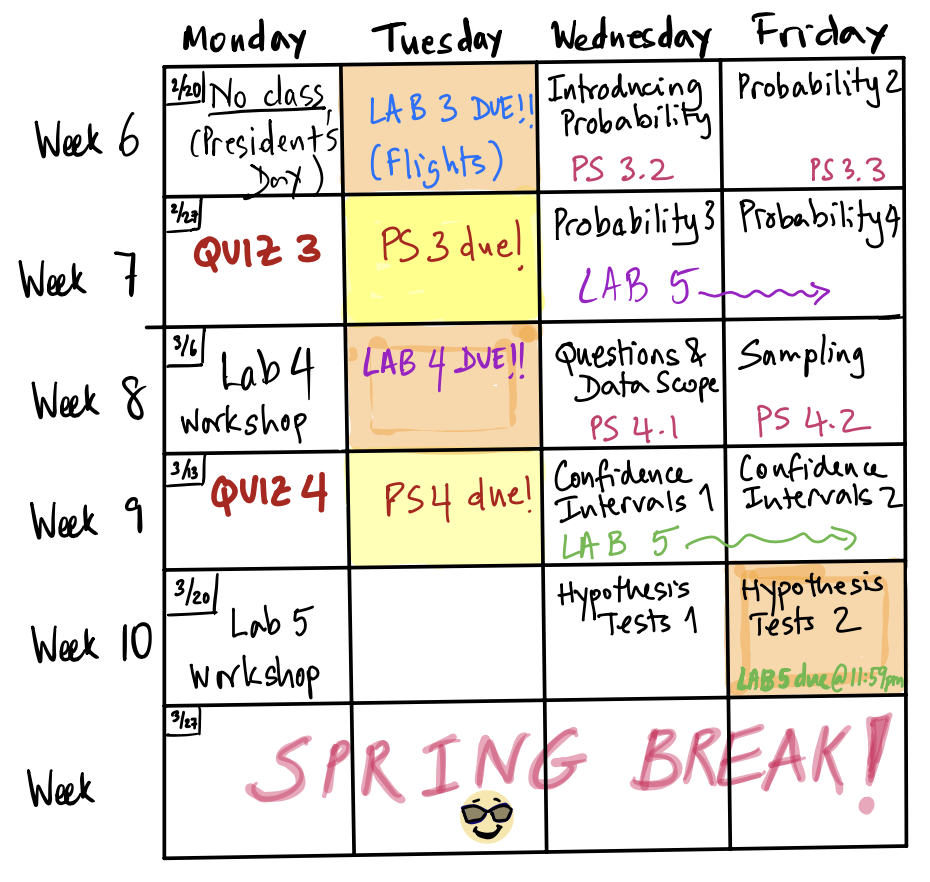 Monday Tuesday Wednesday Friday
Week 6
2/20 No class,
(President's
Day)
LAB 3 DUE!!
(Flights)
Introducing
Probability
PS 3.2
Probability 2
PS 3.3
Week 7
2/27
QUIZ 3
PS 3 due!
Probability 3
LAB 5
Probability 4
Week 8
3/6
Lab 4
workshop
LAB 4 DUE!!
Questions &
Data Scope
PS 4.1
Sampling
PS 4.2
Week 9
3/13
QUIZ 4
PS 4 due!
Confidence
Intervals 1
LAB 5
Confidence
Intervals 2
Week 10
3/20
Lab 5
workshop
Hypothesis
Tests 1
Hypothesis
Tests 2
LAB 5 due @ 11:59pm
Week
3/27
SPRING BREAK!